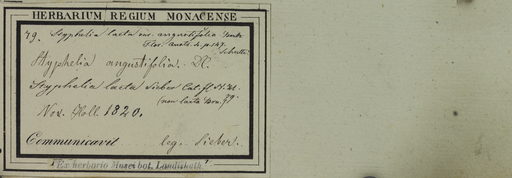 HERBARIUM REGIUM MONACENSE
79. Styphelia laeta var. angustifolia Benth.
Flor. austr. 4. p. 147.
Styphelia angustifolia. DC.
Styphelia laeta Sieber
(non laeta Brn.) 79.
Nov. Holl. 1820.
Communicavit leg. Sieber.
Ex herbario Musei bot. Landishuth.